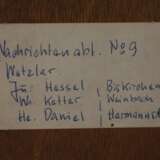 Nachrichtenabt. No 9
Wetzlar
Ju: Hessel Biskirchen
W. Ketter Weinbach
He. Daniel Hermannst